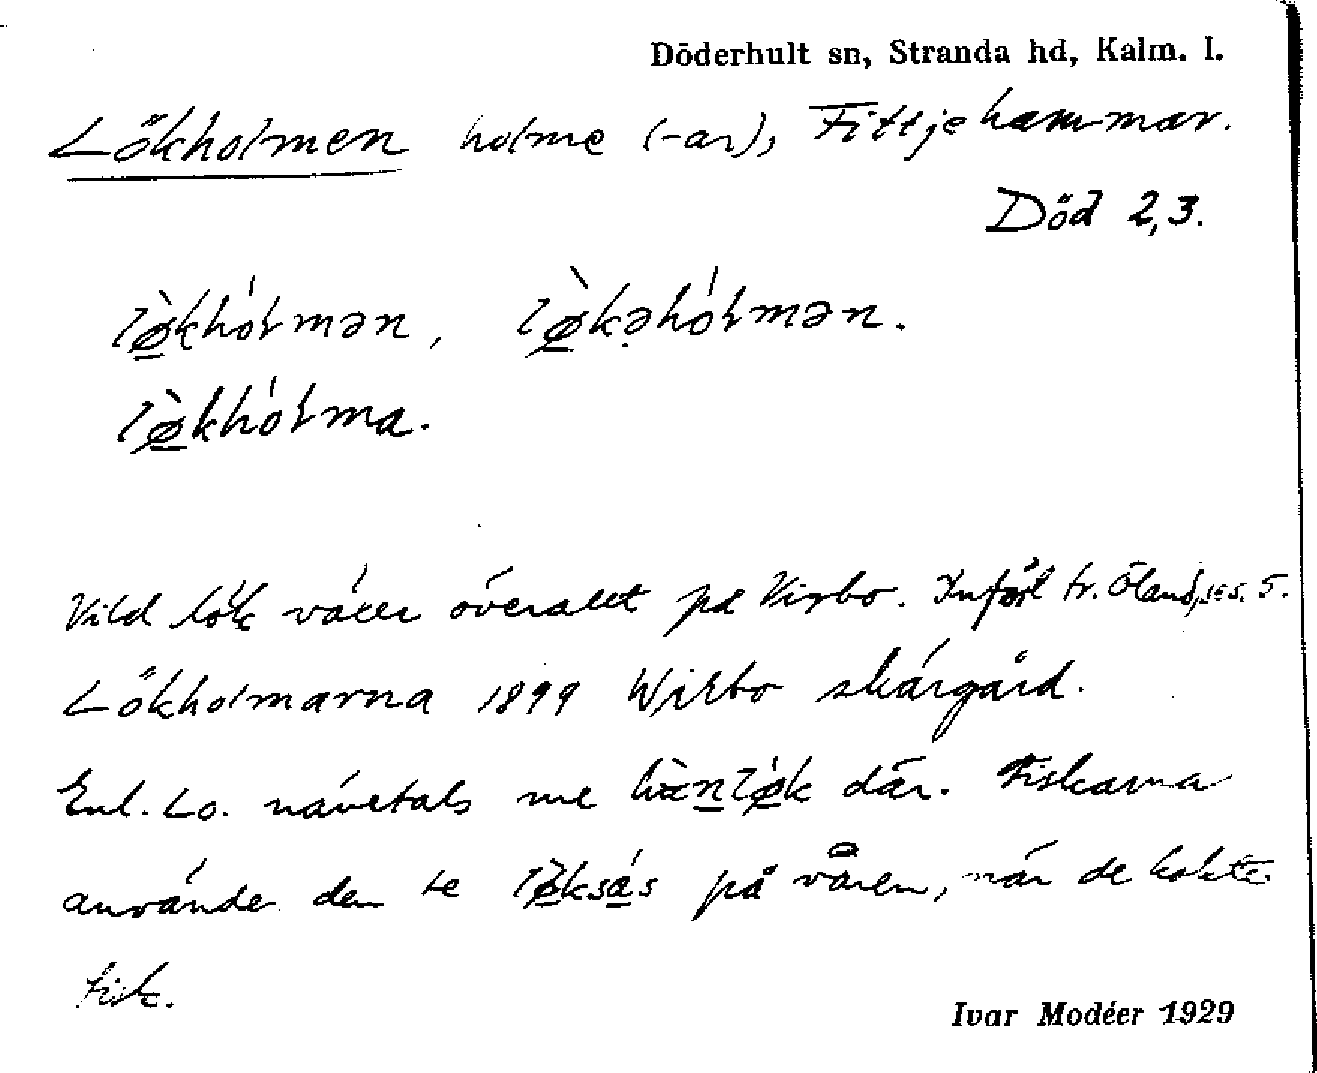 Döderhult sn, Stranda hd, Kalm. l.
Lökholmen holme (-ar), Fittjehammar.
Död 2,3.
lø̀khólmən, lø̀kəhólmən.
lø̀khólma.
Vild lök växer överallt på Virbo. Införl fr. Öland, s. 5.
Lökholmarna 1899 Wirbo skärgård.
Enl. Lo. växer me lök där. Fiskarna
använde den te lø̀ksás på våren, när de kokte
fisk.
Ivar Modéer 1929